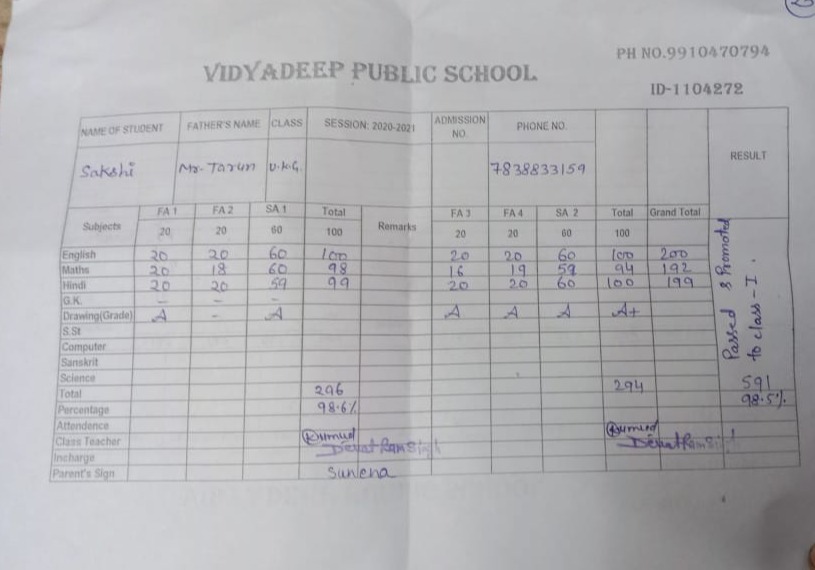 PH NO.9910470794
VIDYADEEP PUBLIC SCHOOL
ID-1104272
NAME OF STUDENT FATHER'S NAME CLASS SESSION: 2020-2021 ADMISSION NO. PHONE NO. RESULT
Sakshi Mr. Tarun U.K.G. 7838833159
Subjects FA 1 FA 2 SA 1 Total Remarks FA 3 FA 4 SA 2 Total Grand Total
20 20 60 100 20 20 60 100
English 20 20 60 100 20 20 60 100 200
Maths 20 18 60 98 16 19 59 94 192
Hindi 20 20 59 99 20 20 60 100 199
G.K. - - -
Drawing(Grade) A - A A A A A+
Passed & Promoted
to class - I.
S.St
Computer
Sanskrit
Science
Total 296 294 591
Percentage 98.6% 98.5%
Attendence
Class Teacher Kumud Kumud
Incharge
Parent's Sign Sunena